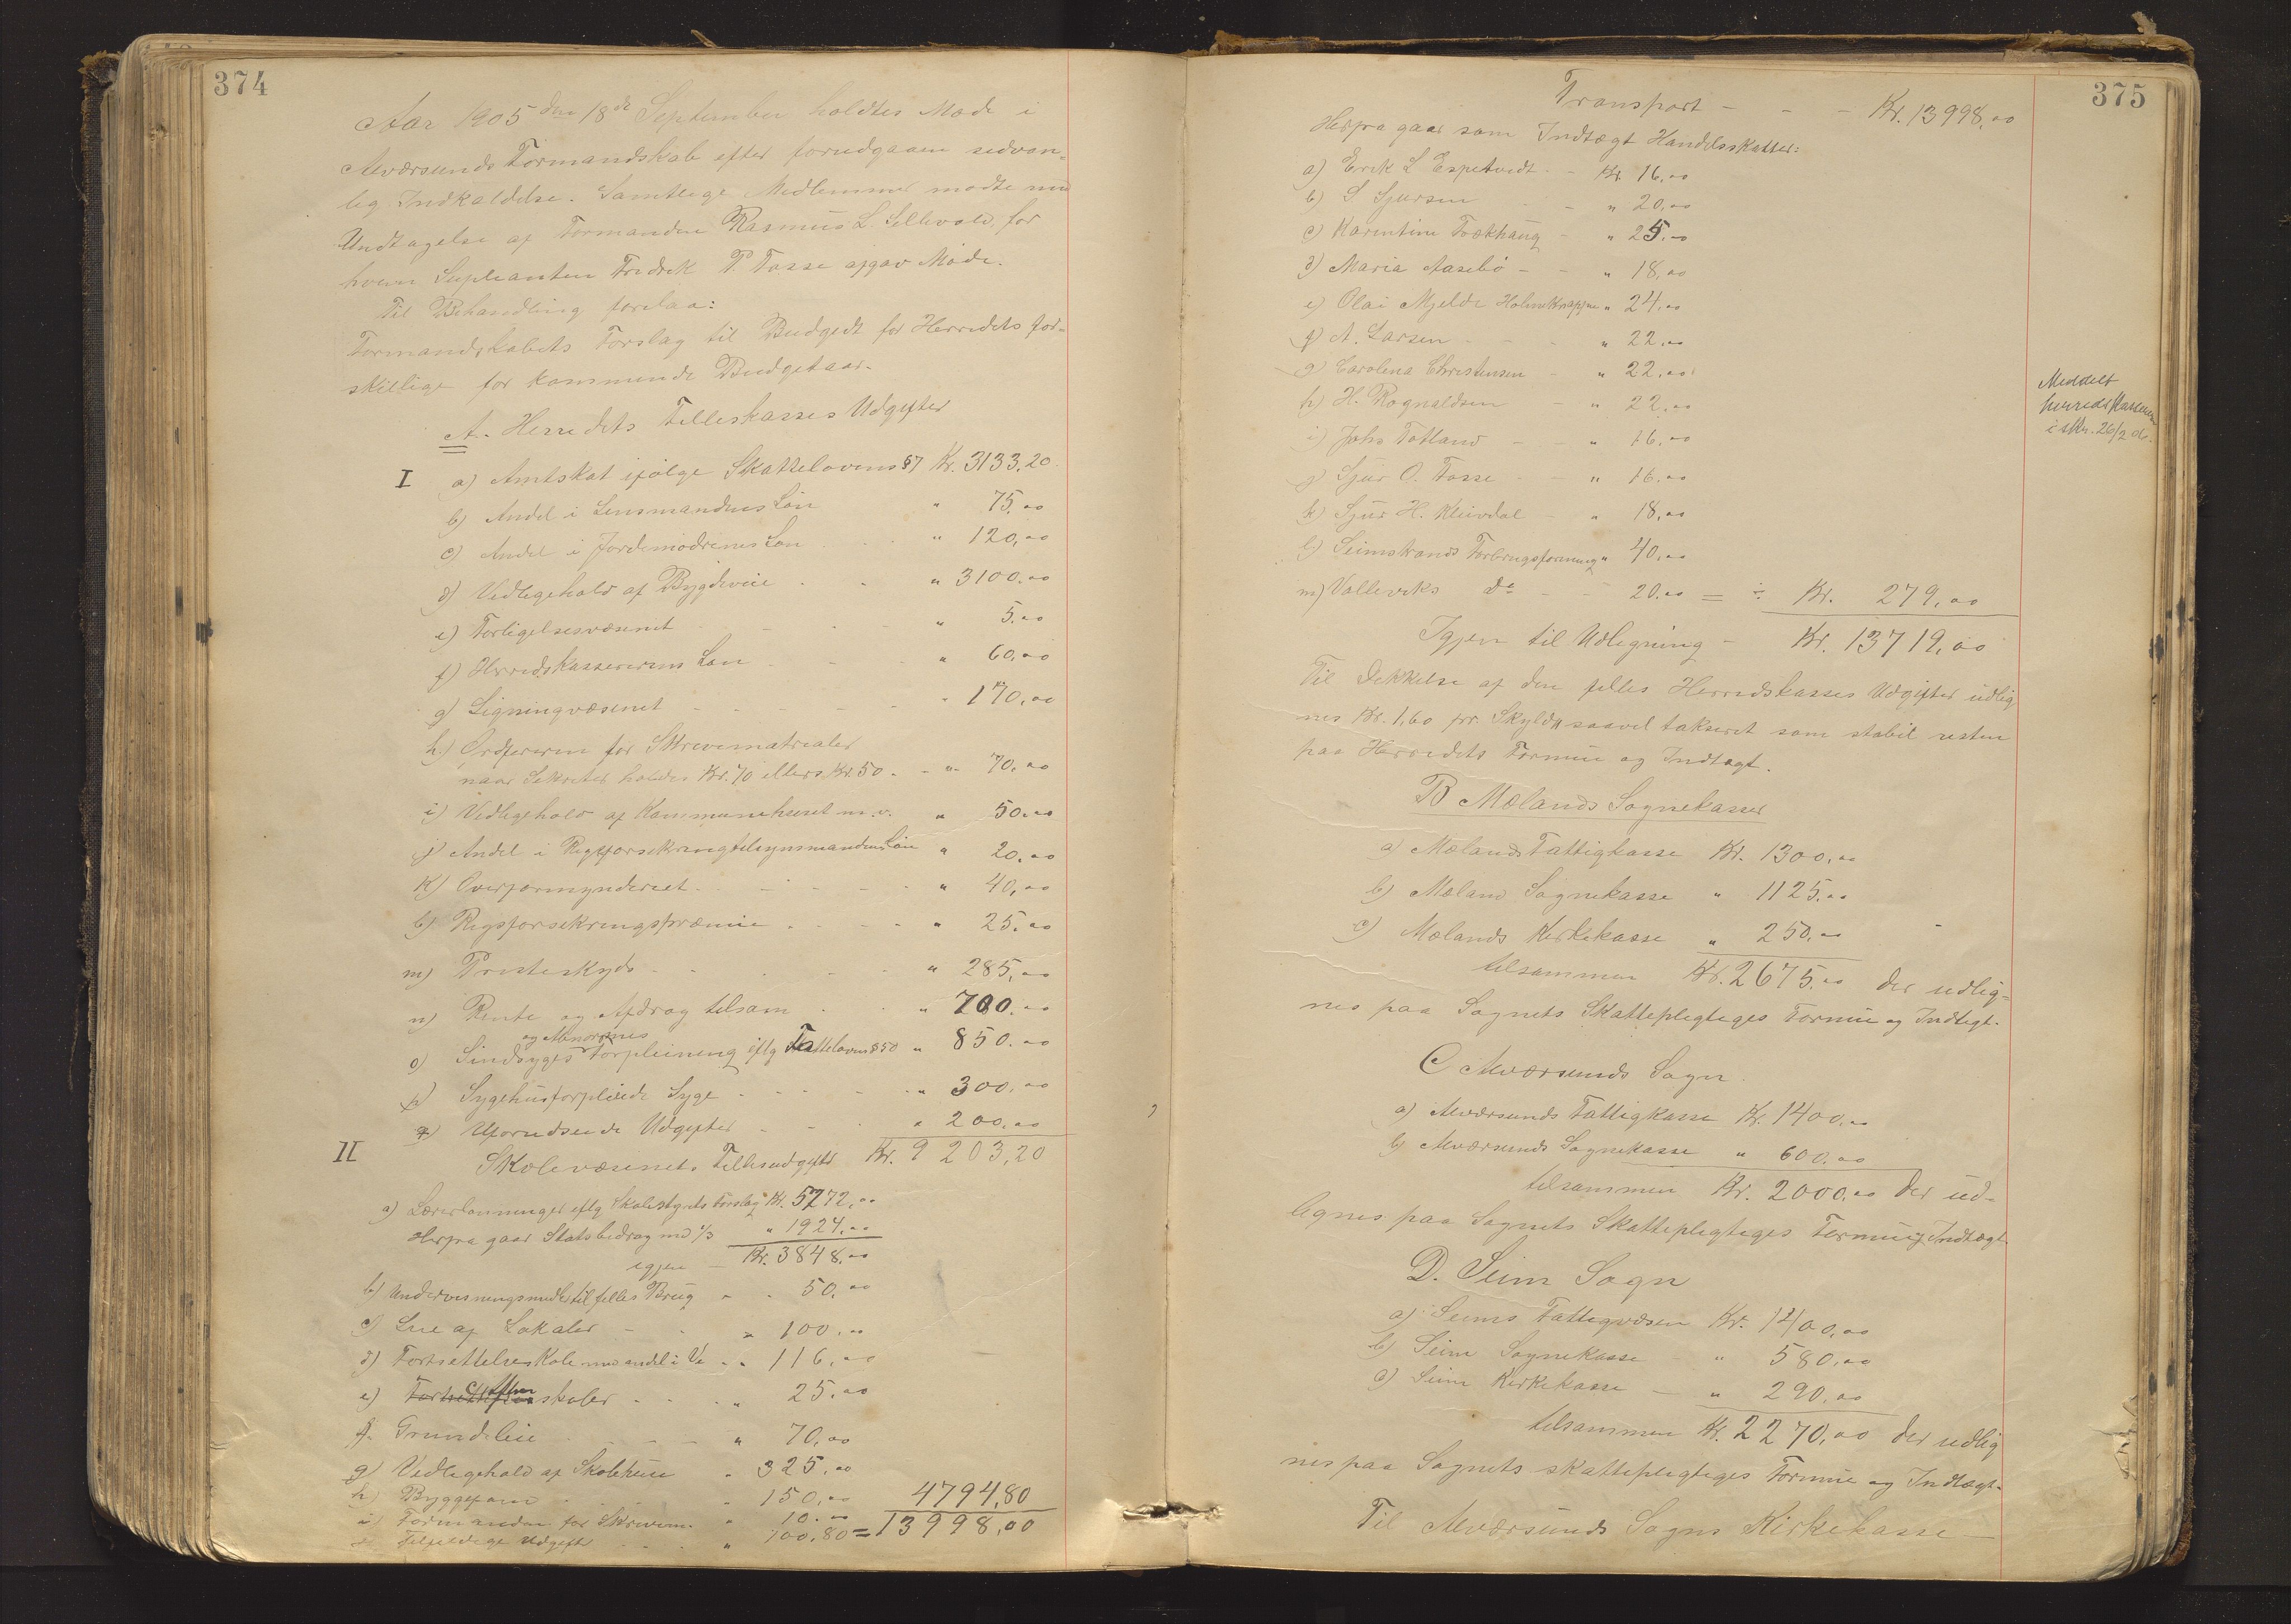 374
Aar 1905 den 18de September holdtes Møde i
Alversunds Formandskab efter forudgaaen sedvan-
lig Indkaldelse. Samtlige Medlemmer mødte med
Undtagelse af Formanden Rasmus L. Sellevold, for
hvem Supleanten Fredrik P. Fosse afgav Møde.
Til Behandling forelaa:
Formandskabets Forslag til Budgedt for Herredets for-
skillige for kommende Budgetaar.
A. Herredets Felleskasses Udgifter
I a) Amtskat ifølge Skattelovens §7 Kr. 3133,20
b) Andel i Lensmandens Løn " 75,00
c) Andel i Jordemødrenes Løn " 120,00
d) Vedligehold af Bygdeveie " 3100.00
e) Forligelsesvæsenet " 5.00
f) Herredskassererens Løn " 60,00
g) Ligningvæsenet - 170,00
h) Ordføreren for Skrivematrialer
naar Sekretær holdes Kr. 70 ellers Kr. 50 - " 70,00
i) Vedligehold af Kommunehuset m.v. " 50.00
j) Andel i Rigsforsikringtilsynsmandens Løn " 20,00
k) Overformynderiet " 40,00
l) Rigsforsikringspræmie " 25.00
m) Presteskyds " 285,00
n) Rente og Afdrag tilsam " 700.00
og Abnormes
o) Sindsyges Forpleining iflg Fattelovens §50 " 850.00
p) Sygehusforpleiede Syge " 300,00
q) Uforudseede Udgifter " 200,00
II Skolevæsenets Fellesudgifter Kr. 9203,20
a) Lærerlønninger iflg Skolestyrets Forslag Kr. 5772,00
Herfra gaar Statsbedrag med 1/3 " 1924.00
igjen - Kr. 3848,00
b) Undervisningsmidler til felles Brug " 50,00
c) Leie af Lokaler " 100.00
d) Fortsættelseskole med andel i Ve " 116,00
e) Aftenskoler " 25.00
f. Grundeleie " 70,00
g) Vedligehold af Skolehuse " 325,00
h) Byggefond " 150,00 4794,80
i) Formanden for Skrivem. " 10.00
Tilfeldige Udgifter " 100,80 = 13998,00
375
Transport - - - Kr. 13998,00
Herfra gaar som Indtægt Handelsskatter:
a) Erik L Espetvedt - Kr. 16,00
b) S Sjursen " 20,00
c) Karentine Fækhaug " 25.00
d) Maria Aasebø - - " 18,00
e) Olai Mjelde Holmeknappen " 24.00
f) A. Larsen " 22.00
g) Carolina Christensen - " 22,00
h) H. Rognaldsen " 22,00
i) Johs Totland - - " 16,00
j) Sjur O. Fosse - " 16.00
k) Sjur H. Kleivdal - " 18,00
l) Seimstrands Forbrugsforening " 40,00
m) Valleviks do - - 20.00 = ÷ Kr. 279,00
Igjen til Udligning - Kr. 13719,00
Til Dekkelse af den felles Herredskasses Udgifter udlig
nes Kr. 1,60 pr. Skyld saavel takseret som stabil resten
paa Herredets Formue og Indtægt.
B Mælands Sognekasser
a) Mælands Fattigkasse Kr. 1300,00
b) Mæland Sognekasse " 1125.00
c) Mælands Kirkekasse " 250,00
tilsammen Kr. 2675.00 der udlig-
nes paa Sognets Skattepligtiges Formue og Indtægt.
C Alversunds Sogn.
a) Alversunds Fattigkasse Kr. 1400,00
b) Alversunds Sognekasse " 600.00
tilsammen Kr. 2000.00 der ud-
lignes paa Sognets Skattepligtiges Formue og Indtægt.
D. Seim Sogn
a) Seims Fattigvæsen Kr. 1400,00
b) Seim Sognekasse - " 580,00
c) Seim Kirkekasse - " 290,00
tilsammen Kr. 2270,00 der udlig
nes paa Sognets skattepligtiges Formue og Indtægt.
Til Alversunds Sogns Kirkekasse -
Meddelt
herredskasseren
i skr. 26/2 06.